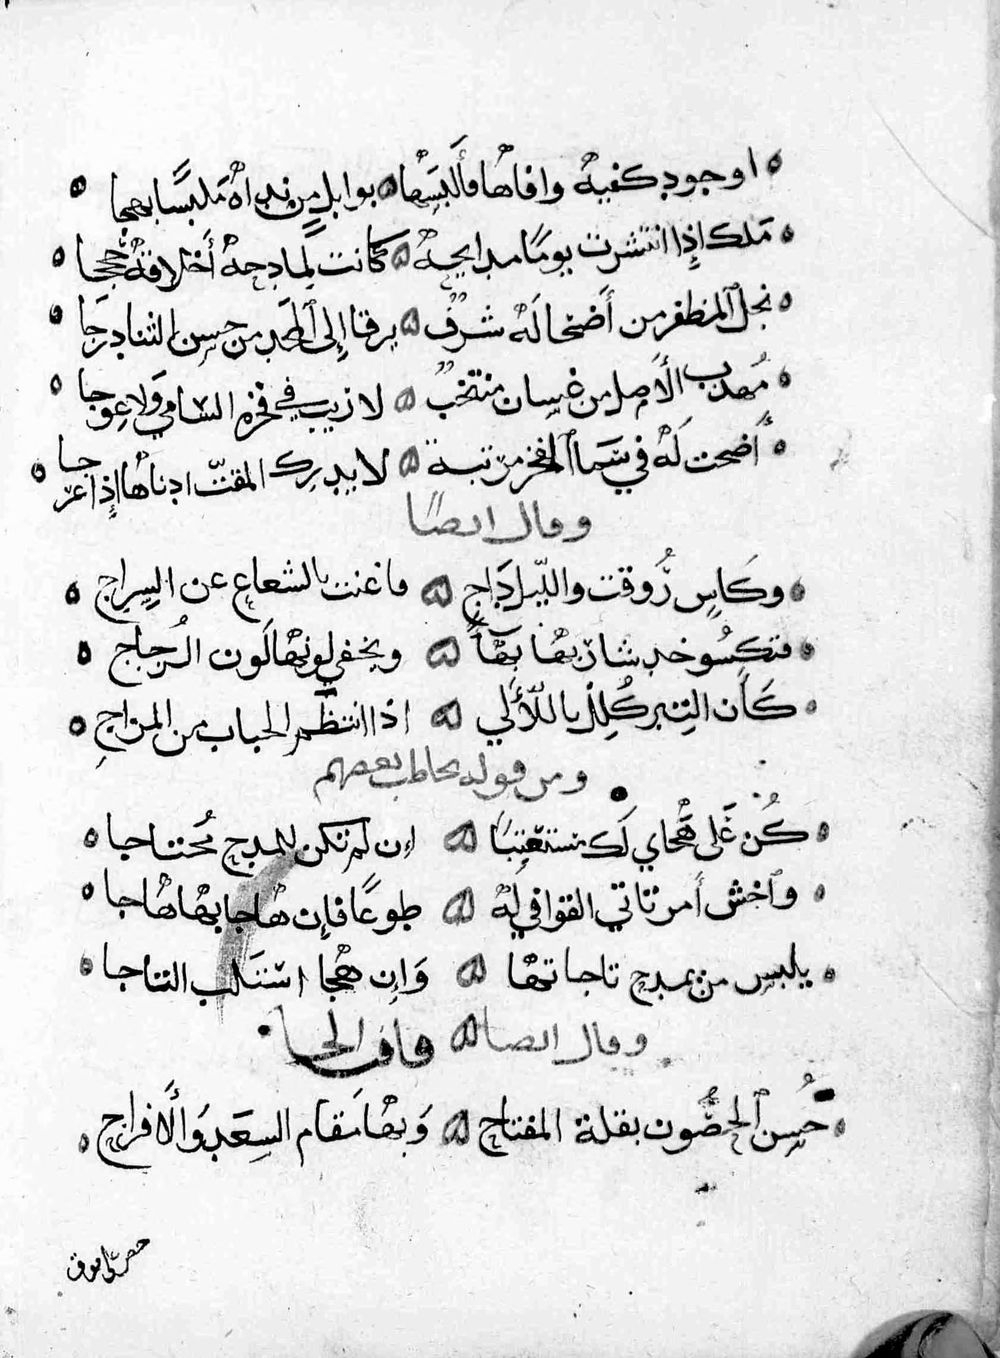 او جود كفيهْ وافاهْا فأَلبَسَهْا بوابلٍ من نداهْ مَلبسًا بهجا
مَلك إذا انتشرت يومًا مدايحهْ كانت لمادحهْ أخلاقهْ حُججا
نجل المظفر من أَضحا لَهْ شرفٌ يرقا إلى المجد من حسن الثنا درجا
مُهدب الأَصل من غسان منتخبٌ لا زيب في فخره السامي ولا عوجا
أَضحت لَهْ في سَما الفخر مرتبة لا يدرك المقتّ ادناهْا إذا عرجا
وقال ايضًا
وكَاسٍ رُوقت والليّل دَاجِ فاغنت بالشعاعِ عن السِراجِ
فتكسُو خد شاربهْا بهْآً ويخفي لونهْا لَون الزُجاج
كَأن التِبر كُلِل باللآلي اذا انتظَم الحباب من المزاجِ
ومن قوله يخاطب بعضهم
كُن عَلى هْجاي لَك مستعتبًا إن لم تكن للمدح مُحتاجا
وأخش أمر تاتي القوافي لهْ طوعًا فإن هْاجا بهْا هْاجا
يلبس من يمدح تاجا تهْا وَإن هْجا استَلب التاجا
وقال ايضا قاف الحا
حُسن الحصُون بقلة المفتاح وَبهْا مَقام السعَد وَالأفراح